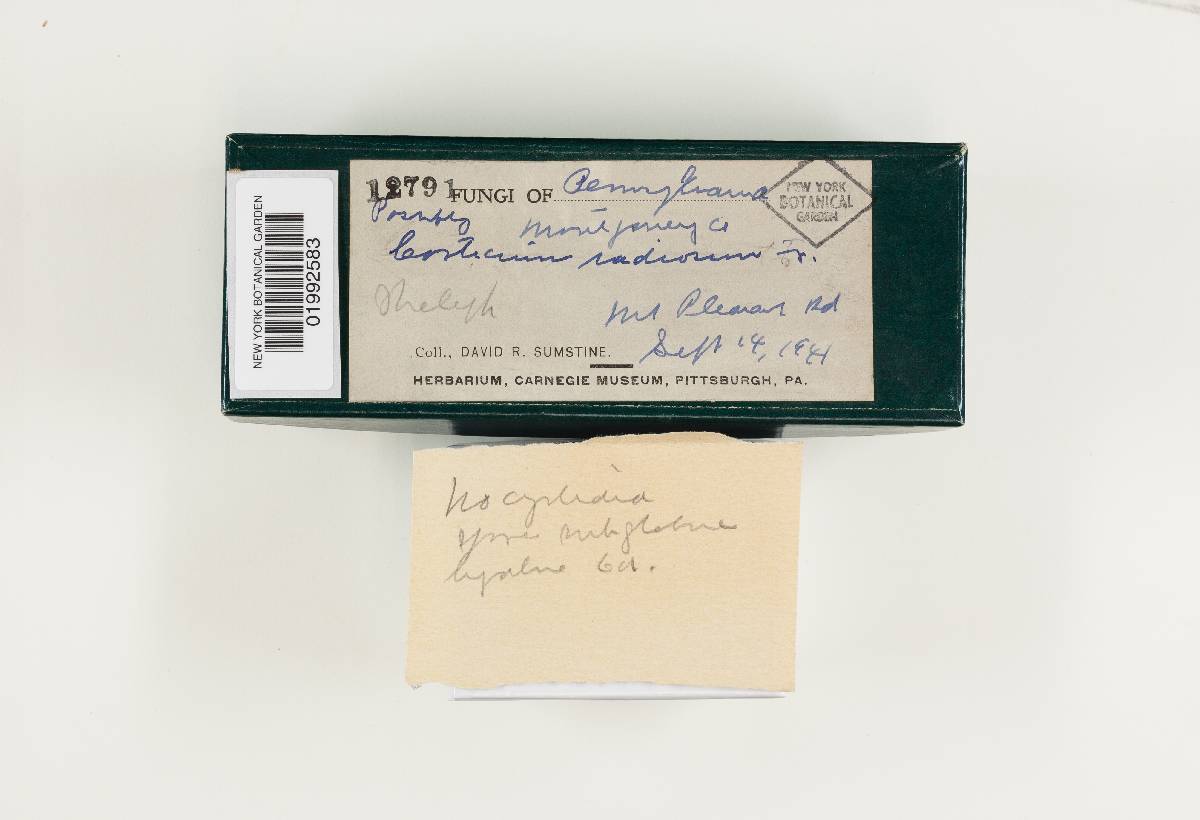 NEW YORK BOTANICAL GARDEN
01992583
12791
FUNGI OF Pennsylvania
NEW YORK
BOTANICAL
GARDEN
Possibly Montgomery Co
Corticium radiosum Fr.
Theleph
Mt Pleasant Rd
Coll., DAVID R. SUMSTINE. Sept 14, 1941
HERBARIUM, CARNEGIE MUSEUM, PITTSBURGH, PA.
No cystidia
spores subglobose
hyaline 6d.